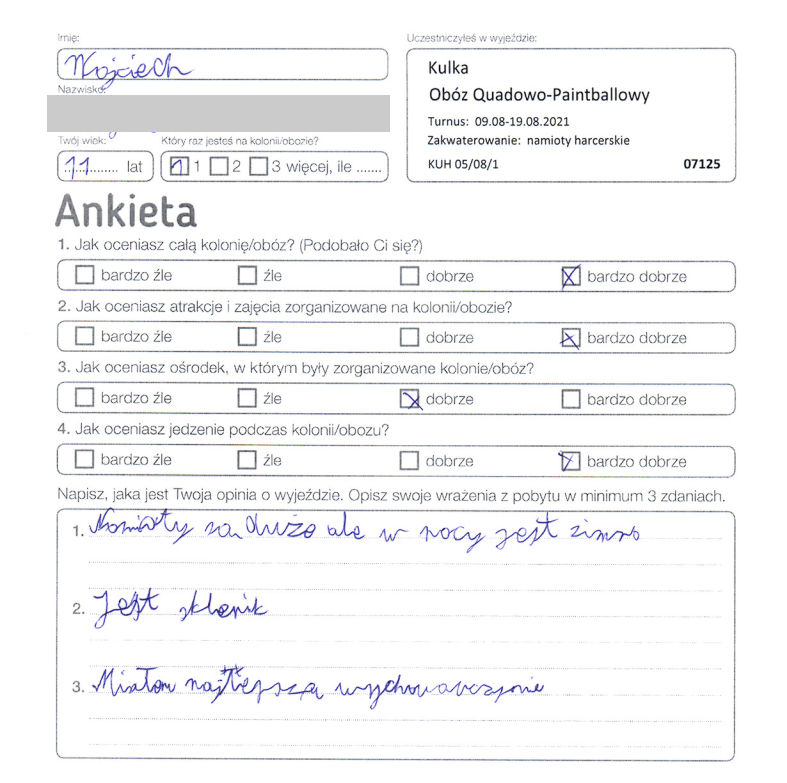 Imię:
Wojciech
Nazwisko:
Twój wiek:
11 lat
Który raz jesteś na kolonii/obozie?
1 2 3 więcej, ile .......
Uczestniczyłeś w wyjeździe:
Kulka
Obóz Quadowo-Paintballowy
Turnus: 09.08-19.08.2021
Zakwaterowanie: namioty harcerskie
KUH 05/08/1 07125
Ankieta
1. Jak oceniasz całą kolonię/obóz? (Podobało Ci się?)
bardzo źle źle dobrze bardzo dobrze
2. Jak oceniasz atrakcje i zajęcia zorganizowane na kolonii/obozie?
bardzo źle źle dobrze bardzo dobrze
3. Jak oceniasz ośrodek, w którym były zorganizowane kolonie/obóz?
bardzo źle źle dobrze bardzo dobrze
4. Jak oceniasz jedzenie podczas kolonii/obozu?
bardzo źle źle dobrze bardzo dobrze
Napisz, jaka jest Twoja opinia o wyjeździe. Opisz swoje wrażenia z pobytu w minimum 3 zdaniach.
1. Namioty są duże ale w nocy jest zimno
2. Jest sklepik
3. Miałem najlepszą